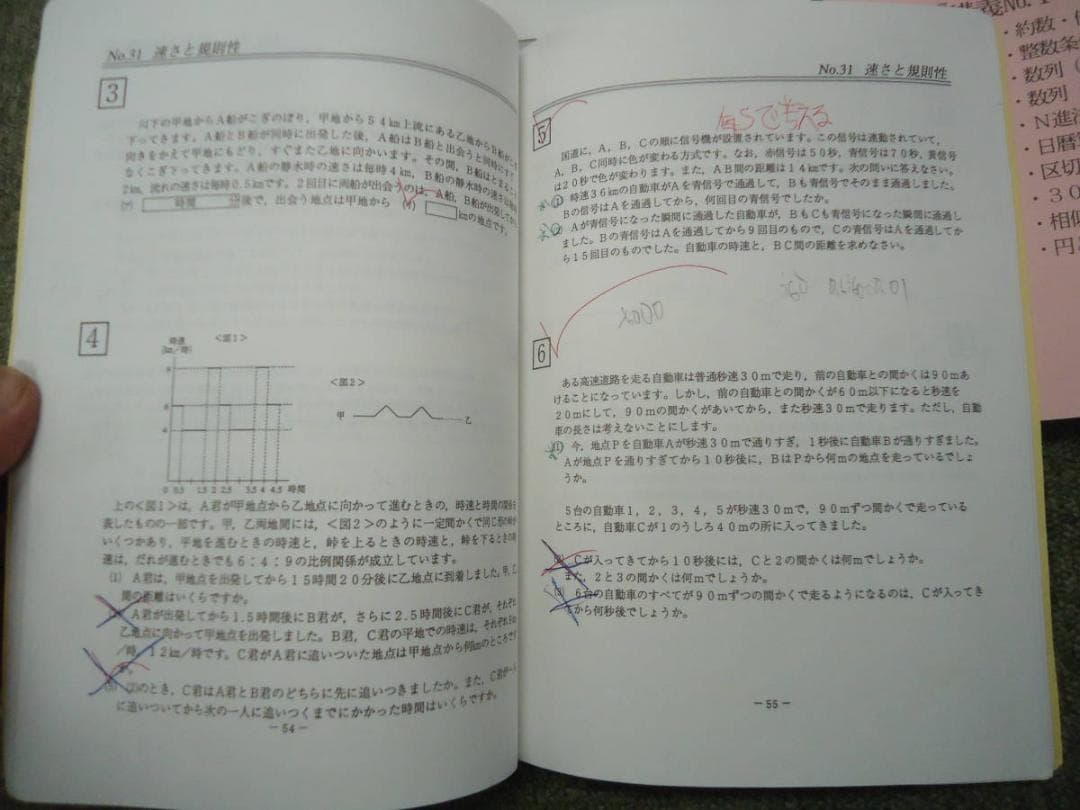 No.31 速さと規則性
3
川下の甲地からA船がこぎのぼり，甲地から54km上流にある乙地からB船が
下ってきます。A船とB船が同時に出発した後，A船はB船と出会うと同時にすぐ
向きをかえて甲地にもどり，すぐまた乙地に向かいます。その間，B船はとまる
なくこぎ下ってきます。A船の静水時の速さは毎時4km，B船の静水時の速さは毎時
2km，流れの速さは毎時0.5kmです。2回目に両船が出会うのは，A船，B船が出発してから
(ア) 時間 分後で，出会う地点は甲地から (イ) kmの地点です。
4
時速
(km/時)
<図1>
9
6
4
0 0.5 1.5 2 2.5 3.5 4 4.5 時間
<図2>
甲 乙
上の<図1>は，A君が甲地点から乙地点に向かって進むときの，時速と時間の関係を
表したものの一部です。甲，乙両地間には，<図2>のように一定間かくで同じ形の峠が
いくつかあり，平地を進むときの時速と，峠を上るときの時速と，峠を下るときの時
速は，だれが進むときでも6：4：9の比例関係が成立しています。
(1) A君は，甲地点を出発してから15時間20分後に乙地点に到着しました。甲，乙
間の距離はいくらですか。
A君が出発してから1.5時間後にB君が，さらに2.5時間後にC君が，それぞれ
乙地点に向かって甲地点を出発しました。B君，C君の平地での時速は，それぞれ
/時，12km/時です。C君がA君に追いついた地点は甲地点から何kmのところです
か。
(3) (2)のとき，C君はA君とB君のどちらに先に追いつきましたか。また，C君が一人
に追いついてから次の一人に追いつくまでにかかった時間はいくらですか。
－54－
No.31 速さと規則性
5
自らで考える
国道に，A，B，Cの順に信号機が設置されています。この信号は連動されていて，
A，B，C同時に色が変わる方式です。なお，赤信号は50秒，青信号は70秒，黄信号
は20秒で色が変わります。また，AB間の距離は14kmです。次の問いに答えなさい。
(1) 時速36kmの自動車がAを青信号で通過して，Bも青信号でそのまま通過しました。
Bの信号はAを通過してから，何回目の青信号でしたか。
(2) Aが青信号になった瞬間に通過した自動車が，BもCも青信号になった瞬間に通過し
ました。Bの青信号はAを通過してから9回目のもので，Cの青信号はAを通過してか
ら15回目のものでした。自動車の時速と，BC間の距離を求めなさい。
6
ある高速道路を走る自動車は普通秒速30mで走り，前の自動車との間かくは90mあ
けることになっています。しかし，前の自動車との間かくが60m以下になると秒速を
20mにして，90mの間かくがあいてから，また秒速30mで走ります。ただし，自動
車の長さは考えないことにします。
(1) 今，地点Pを自動車Aが秒速30mで通りすぎ，1秒後に自動車Bが通りすぎました。
Aが地点Pを通りすぎてから10秒後に，BはPから何mの地点を走っているでしょ
うか。
5台の自動車1，2，3，4，5が秒速30mで，90mずつ間かくで走っている
ところに，自動車Cが1のうしろ40mの所に入ってきました。
(2) Cが入ってきてから10秒後には，Cと2の間かくは何mでしょうか。
また，2と3の間かくは何mでしょうか。
(3) 6台の自動車のすべてが90mずつの間かくで走るようになるのは，Cが入ってき
てから何秒後でしょうか。
－55－
・約数・
・整数条
・数列（
・数列
・N進法
・日暦
・区切
・30
・相似
・円